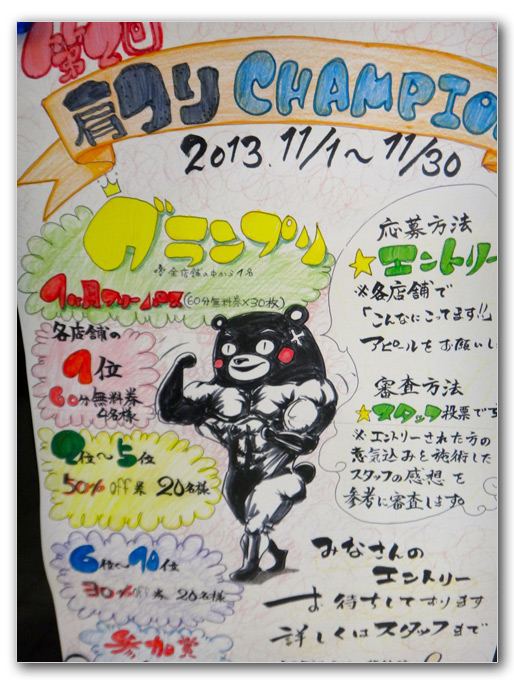 第2回
肩コリ CHAMPIO
2013. 11/1～11/30
グランプリ
全店舗の中から1名
1ヶ月フリーパス(60分無料券×30枚)
各店舗の
1位
60分無料券
4名様
2位～5位
50% off券 20名様
6位～10位
30% off券 20名様
参加賞
応募方法
★エントリー
※各店舗で
「こんなにこってます!!」
アピールをお願いし
審査方法
★スタッフ投票です
※エントリーされた方の
意気込みを施術した
スタッフの感想を
参考に審査します。
みなさんの
エントリー
お待ちしております
詳しくはスタッフまで